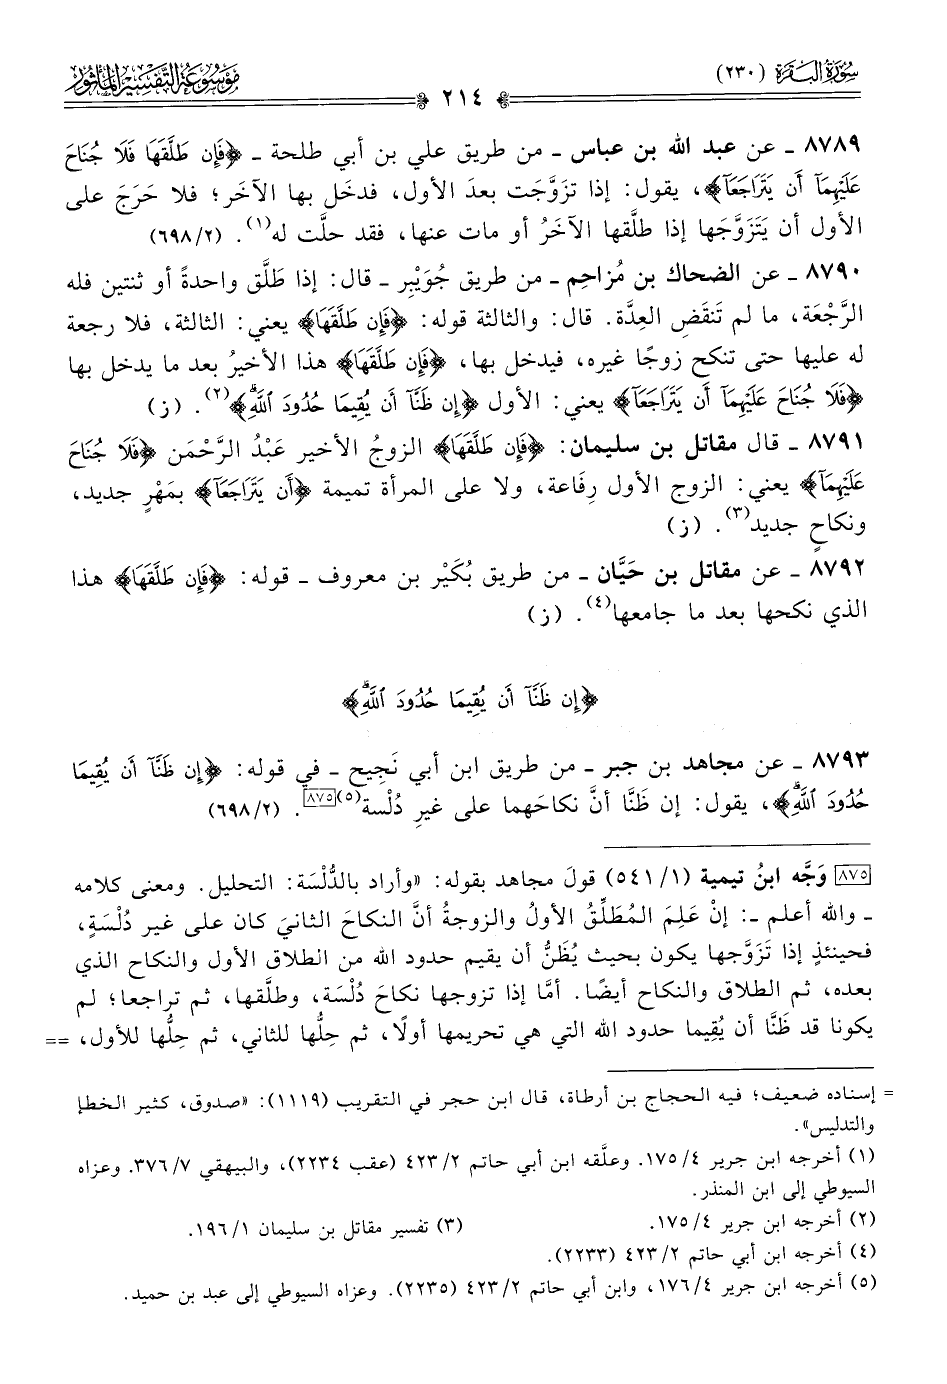 سُورَةُ البَقَرَة (٢٣٠)
٢١٤
مَوْسُوعَةُ التَّفْسِيرِ المَأْثُور
٨٧٨٩ ـ عن عبد الله بن عباس ـ من طريق علي بن أبي طلحة ـ ﴿فَإِن طَلَّقَهَا فَلَا جُنَاحَ
عَلَيْهِمَآ أَن يَتَرَاجَعَآ﴾، يقول: إذا تزَوَّجَت بعدَ الأول، فدخَل بها الآخَر؛ فلا حرَجَ على
الأول أن يَتَزَوَّجَها إذا طلَّقها الآخَرُ أو مات عنها، فقد حلَّت له(١). (٢/٦٩٨)
٨٧٩٠ ـ عن الضحاك بن مُزاحِم ـ من طريق جُوَيْبِر ـ قال: إذا طَلَّق واحدةً أو ثنتين فله
الرَّجْعَة، ما لم تَنقَضِ العِدَّة. قال: والثالثة قوله: ﴿فَإِن طَلَّقَهَا﴾ يعني: الثالثة، فلا رجعة
له عليها حتى تنكح زوجًا غيره، فيدخل بها، ﴿فَإِن طَلَّقَهَا﴾ هذا الأخيرُ بعد ما يدخل بها
﴿فَلَا جُنَاحَ عَلَيْهِمَآ أَن يَتَرَاجَعَآ﴾ يعني: الأول ﴿إِن ظَنَّآ أَن يُقِيمَا حُدُودَ ٱللَّهِۗ﴾(٢). (ز)
٨٧٩١ ـ قال مقاتل بن سليمان: ﴿فَإِن طَلَّقَهَا﴾ الزوجُ الأخير عَبْدُ الرَّحْمَن ﴿فَلَا جُنَاحَ
عَلَيْهِمَآ﴾ يعني: الزوج الأول رِفَاعة، ولا على المرأة تميمة ﴿أَن يَتَرَاجَعَآ﴾ بمَهْرٍ جديد،
ونكاحٍ جديد(٣). (ز)
٨٧٩٢ ـ عن مقاتل بن حَيَّان ـ من طريق بُكَيْر بن معروف ـ قوله: ﴿فَإِن طَلَّقَهَا﴾ هذا
الذي نكحها بعد ما جامعها(٤). (ز)
﴿إِن ظَنَّآ أَن يُقِيمَا حُدُودَ ٱللَّهِۗ﴾
٨٧٩٣ ـ عن مجاهد بن جبر ـ من طريق ابن أبي نَجِيح ـ في قوله: ﴿إِن ظَنَّآ أَن يُقِيمَا
حُدُودَ ٱللَّهِۗ﴾، يقول: إن ظَنَّا أنَّ نكاحَهما على غيرِ دُلْسة(٥)[٨٧٥]. (٢/٦٩٨)
[٨٧٥] وَجَّه ابنُ تيمية (١/٥٤١) قولَ مجاهد بقوله: «وأراد بالدُّلْسَة: التحليل. ومعنى كلامه
ـ والله أعلم ـ: إنْ عَلِمَ المُطَلِّقُ الأولُ والزوجةُ أنَّ النكاحَ الثانيَ كان على غير دُلْسَةٍ،
فحينئذٍ إذا تَزَوَّجها يكون بحيث يُظَنُّ أن يقيم حدود الله من الطلاق الأول والنكاح الذي
بعده، ثم الطلاق والنكاح أيضًا. أمَّا إذا تزوجها نكاحَ دُلْسَة، وطلَّقها، ثم تراجعا؛ لم
يكونا قد ظَنَّا أن يُقِيما حدود الله التي هي تحريمها أولًا، ثم حِلُّها للثاني، ثم حِلُّها للأول، ==
= إسناده ضعيف؛ فيه الحجاج بن أرطاة، قال ابن حجر في التقريب (١١١٩): «صدوق، كثير الخطإ
والتدليس».
(١) أخرجه ابن جرير ٤/١٧٥. وعلَّقه ابن أبي حاتم ٢/٤٢٣ (عقب ٢٢٣٤)، والبيهقي ٧/٣٧٦. وعزاه
السيوطي إلى ابن المنذر.
(٢) أخرجه ابن جرير ٤/١٧٥. (٣) تفسير مقاتل بن سليمان ١/١٩٦.
(٤) أخرجه ابن أبي حاتم ٢/٤٢٣ (٢٢٣٣).
(٥) أخرجه ابن جرير ٤/١٧٦، وابن أبي حاتم ٢/٤٢٣ (٢٢٣٥). وعزاه السيوطي إلى عبد بن حميد.